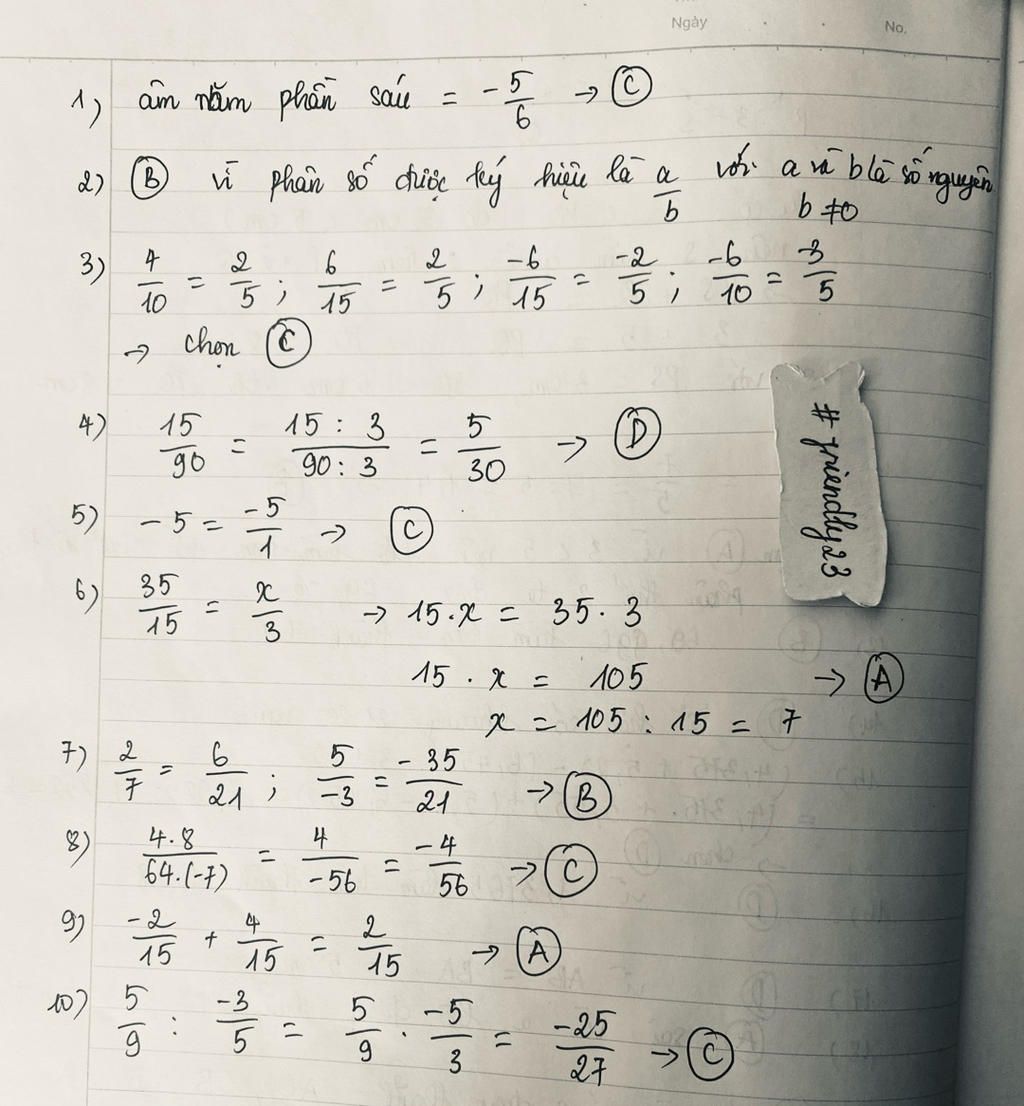 Ngày No.
1) âm năm phần sáu = -5/6 → C
2) B vì phân số được ký hiệu là a/b với a và b là số nguyên
b ≠ 0
3) 4/10 = 2/5; 6/15 = 2/5; -6/15 = -2/5; -6/10 = -3/5
→ chọn C
4) 15/90 = 15 : 3/90 : 3 = 5/30 → D
5) -5 = -5/1 → C
6) 35/15 = x/3 → 15.x = 35.3
15 . x = 105 → A
x = 105 : 15 = 7
7) 2/7 = 6/21; 5/-3 = -35/21 → B
8) 4.8/64.(-7) = 4/-56 = -4/56 → C
9) -2/15 + 4/15 = 2/15 → A
10) 5/9 : -3/5 = 5/9 . -5/3 = -25/27 → C
# friendly23